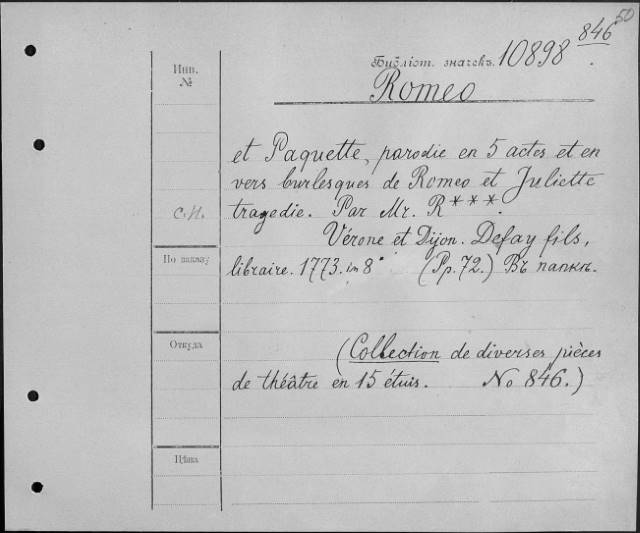 50
846
Библіот. значекъ 10898
Romeo
Инв.
№
et Paquette, parodie en 5 actes et en
vers burlesques de Romeo et Juliette
С.И. tragedie. Par Mr. R***.
Vérone et Dijon. Defay fils,
По заказу
libraire. 1773. in 8° (Pp. 72.) Въ папкѣ.
Откуда
(Collection de diverses pièces
de théâtre en 15 étuis. No 846.)
Цѣна